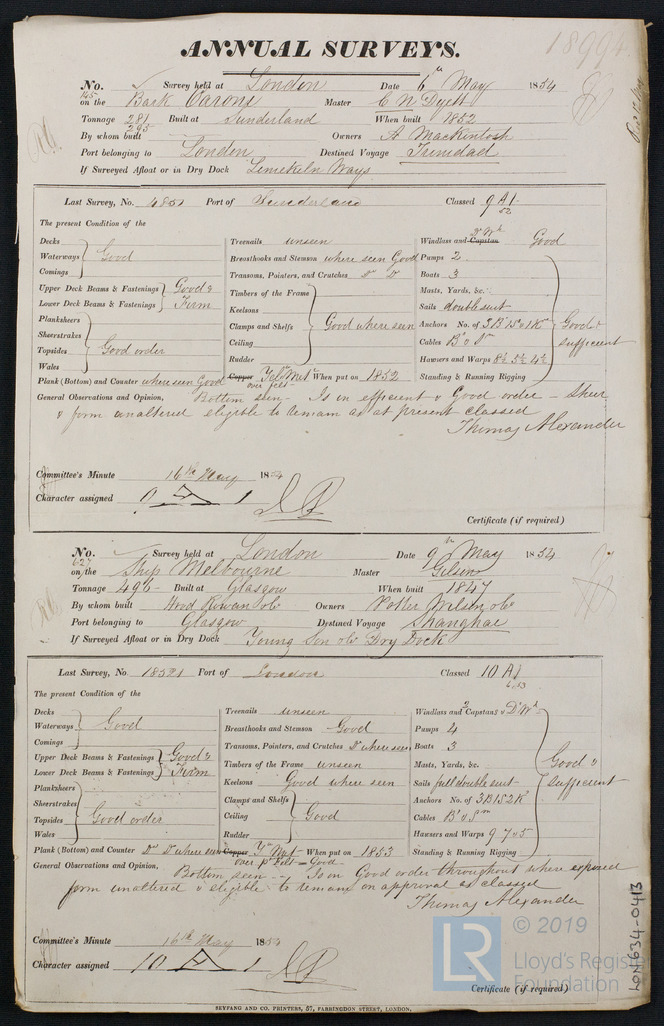 ANNUAL SURVEYS.
18994
No. Survey held at London Date 6th May 1854
on the Bark Master C N Dyett
Tonnage 281 295 Built at Sunderland When built 1852
By whom built Owners A Mackintosh
Port belonging to London Destined Voyage Trinidad
If Surveyed Afloat or in Dry Dock Limekiln Ways
Last Survey, No. 4851 Port of Sunderland Classed 9 A 1. 52
The present Condition of the
Decks
Waterways Good
Comings
Upper Deck Beams & Fastenings Good &
Lower Deck Beams & Fastenings Firm
Planksheers
Sheerstrakes
Topsides Good order
Wales
Plank (Bottom) and Counter where seen Good
Treenails unseen
Breasthooks and Stemson where seen Good
Transoms, Pointers, and Crutches Do Do
Timbers of the Frame
Keelsons
Clamps and Shelfs Good where seen
Ceiling
Rudder
Copper Yel Metl When put on 1852
over felt
Windlass and Capstan Good
Pumps 2
Boats 3
Masts, Yards, &c.
Sails double suit
Anchors No. of 3 B 1 S 1 K Good &
Cables sufficient
Hawsers and Warps 8½ 5½ 4½
Standing & Running Rigging
General Observations and Opinion, Bottom seen - Is in efficient & Good order - Sheer
& form unaltered eligible to remain as at present classed
Thomas Alexander
Committee's Minute 16th May 1854
Character assigned 9 A 1
Certificate (if required)
No. Survey held at London Date 9th May 1854
627 on the Ship Melbourne Master Gilson
Tonnage 496 Built at Glasgow When built 1847
By whom built Wood Owners Potter Wilson & Co
Port belonging to Glasgow Destined Voyage Shanghae
If Surveyed Afloat or in Dry Dock Young Son & Co Dry Dock
Last Survey, No 18521 Port of London Classed 10 A 1
The present Condition of the
Decks
Waterways Good
Comings
Upper Deck Beams & Fastenings Good &
Lower Deck Beams & Fastenings Firm
Planksheers
Sheerstrakes
Topsides Good order
Wales
Plank (Bottom) and Counter Do Do where seen
Treenails unseen
Breasthooks and Stemson Good
Transoms, Pointers, and Crutches Do where seen
Timbers of the Frame unseen
Keelsons Good where seen
Clamps and Shelfs
Ceiling Good
Rudder
Copper Y Met When put on 1853
over Felt - Good
Windlass and 2 Capstans
Pumps 4
Boats 3
Masts, Yards, &c. Good &
Sails full double suit sufficient
Anchors No. of 3 B 1 S 2 K
Cables
Hawsers and Warps 9 7 & 5
Standing & Running Rigging
General Observations and Opinion,
Bottom seen - Is in Good order throughout where exposed
form unaltered & eligible to remain on approval as classed
Thomas Alexander
Committee's Minute 16th May 1854
Character assigned 10 A 1
Certificate (if required)
SEYFANG AND CO. PRINTERS, 57, FARRINGDON STREET, LONDON.
LON634-0413
LR
© 2019
Lloyd's Register
Foundation